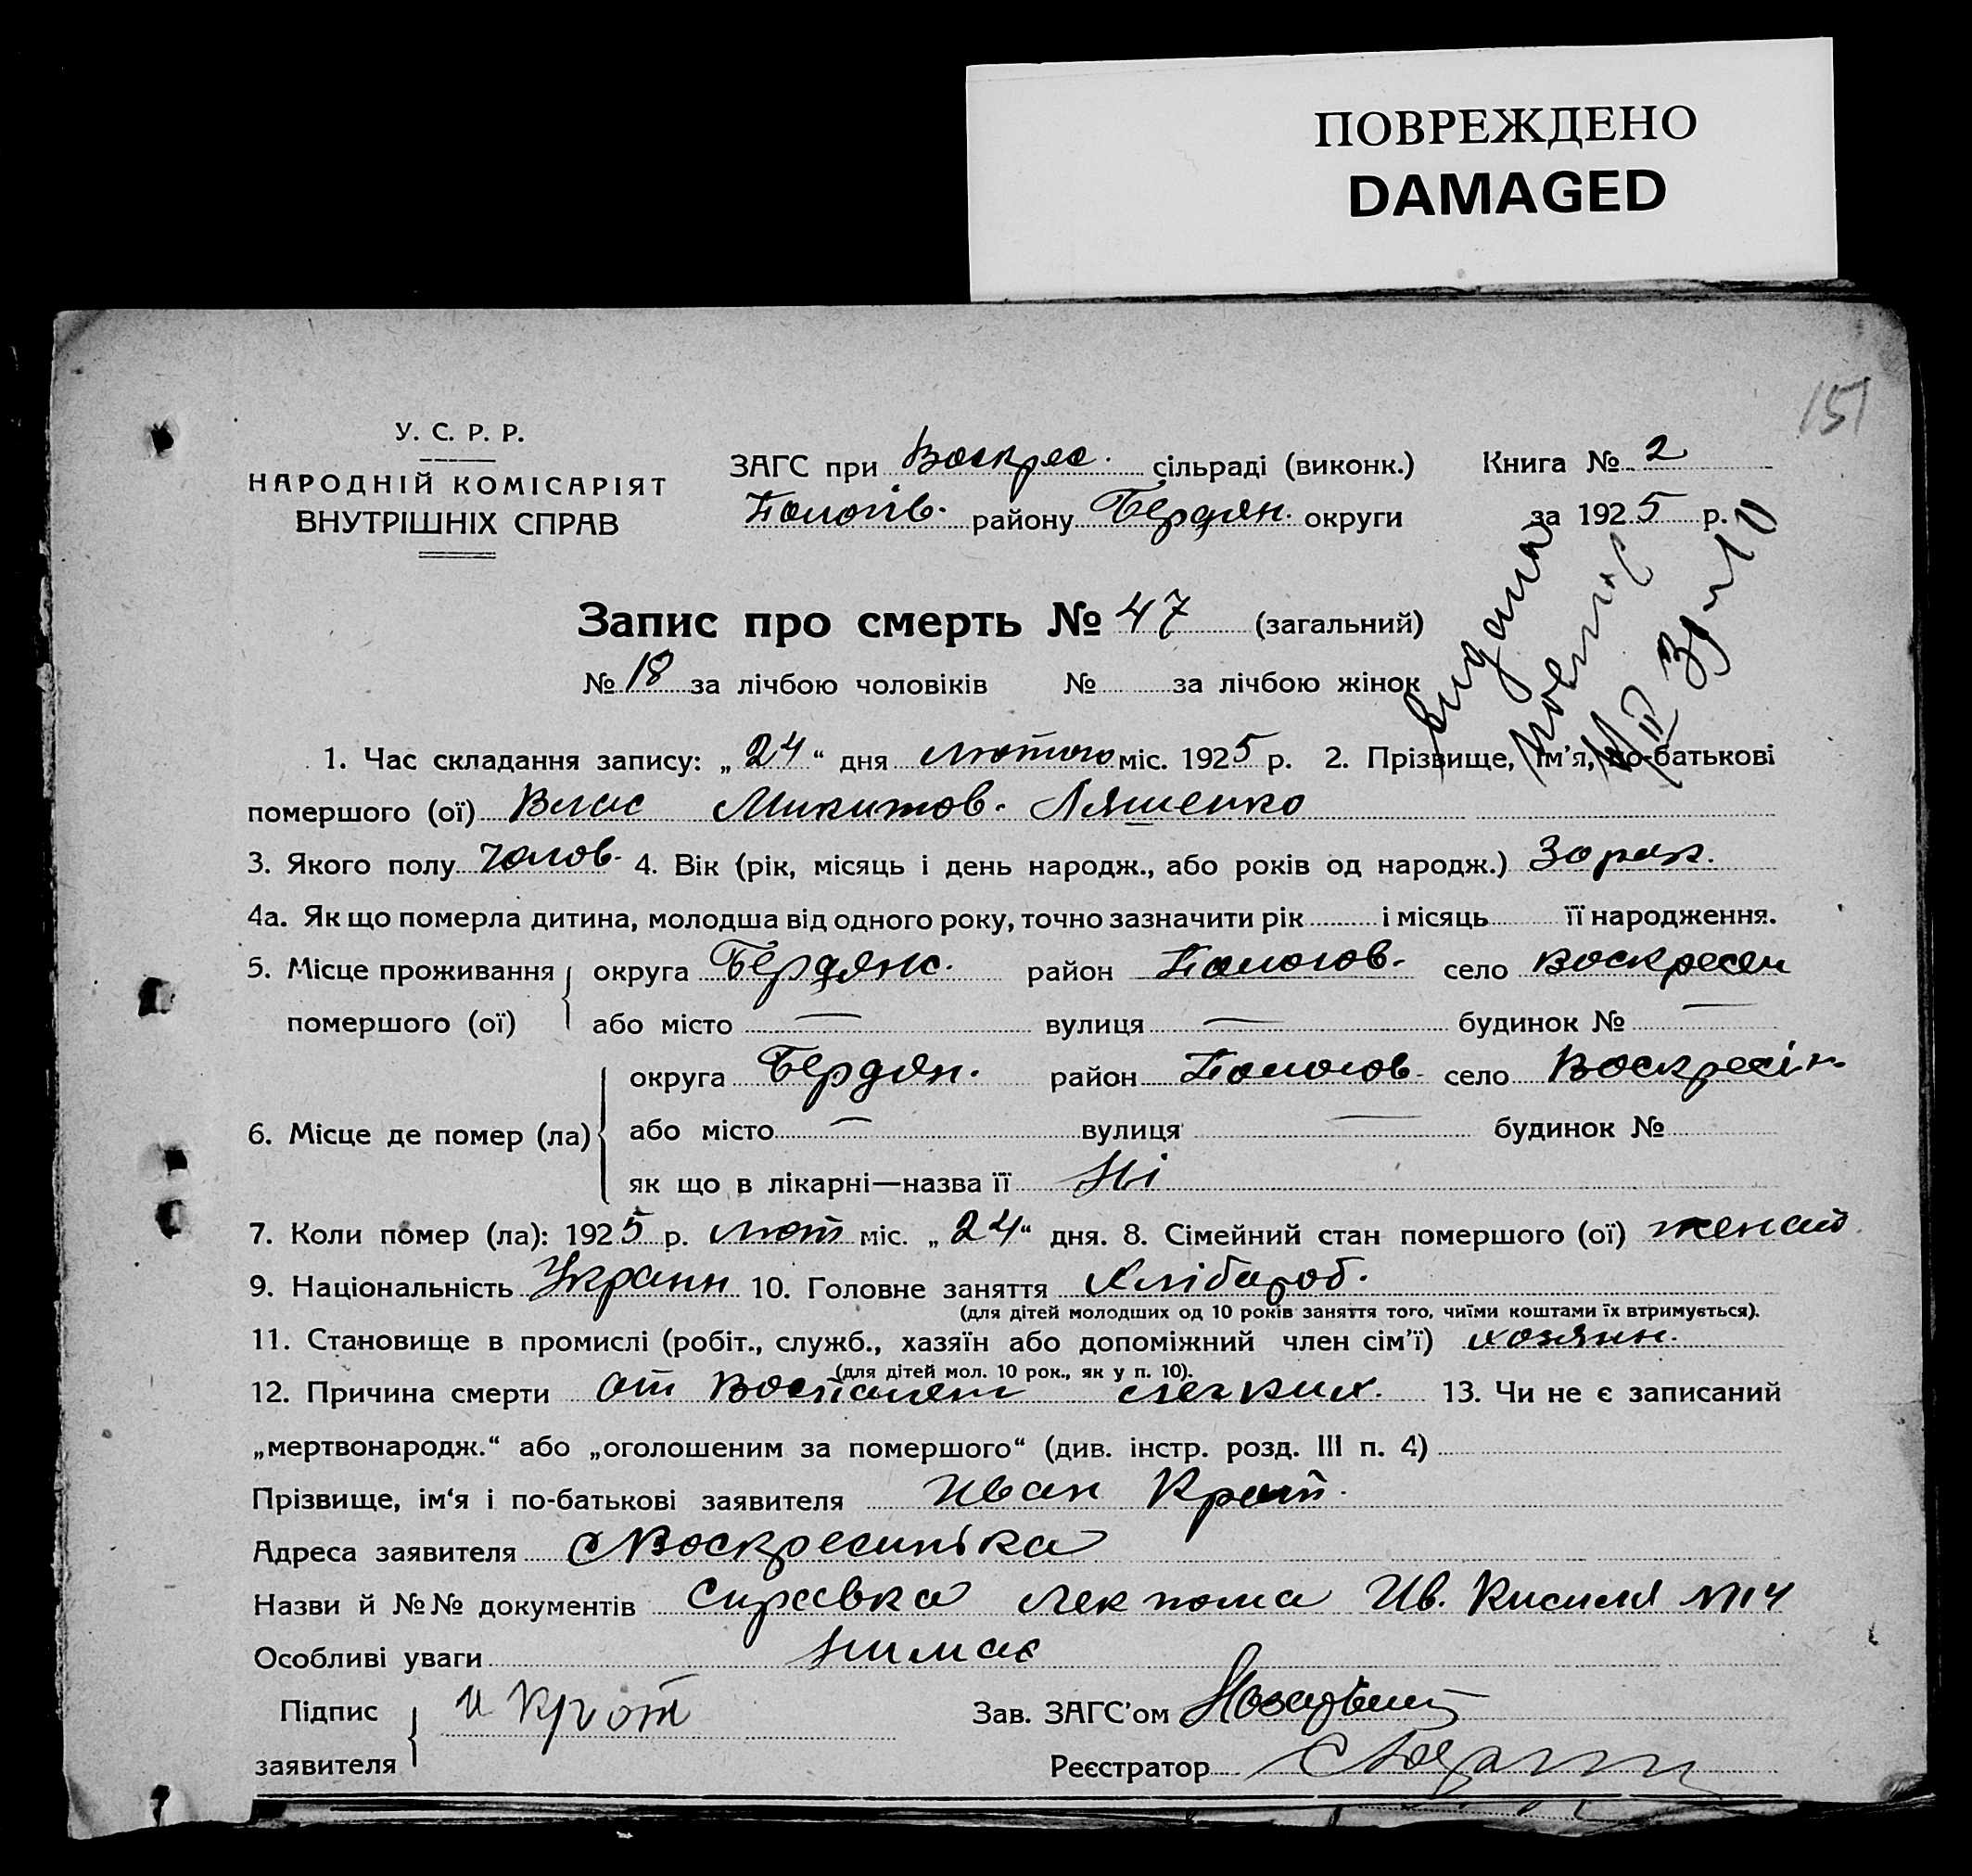 ПОВРЕЖДЕНО
DAMAGED
151
У. С. Р. Р.
НАРОДНІЙ КОМІСАРІЯТ
ВНУТРІШНІХ СПРАВ
ЗАГС при Воскрес. сільраді (виконк.) Книга № 2
Пологів. району Бердян. округи за 1925 р.
Запис про смерть № 47 (загальний)
№ 18 за лічбою чоловіків № за лічбою жінок
видана
1. Час складання запису: „24“ дня лютого міс. 1925 р. 2. Прізвище, ім'я, по-батькові
помершого (ої) Влас Микитов. Ляшенко
3. Якого полу чолов. 4. Вік (рік, місяць і день народж., або років од народж.) 30 рок.
4а. Як що померла дитина, молодша від одного року, точно зазначити рік і місяць її народження.
5. Місце проживання округа Бердянс. район Пологов. село Воскресен
помершого (ої) або місто — вулиця — будинок № —
округа Бердян. район Пологов. село Воскресін
6. Місце де помер (ла) або місто — вулиця — будинок №
як що в лікарні—назва її Ні
7. Коли помер (ла): 1925 р. лют міс. „24“ дня. 8. Сімейний стан помершого (ої) женат
9. Національність Украин 10. Головне заняття Хлібороб.
(для дітей молодших од 10 років заняття того, чиїми коштами їх втримується).
11. Становище в промислі (робіт., служб., хазяїн або допоміжний член сім'ї) хозяин.
(для дітей мол. 10 рок., як у п. 10).
12. Причина смерти от Воспален легких. 13. Чи не є записаний
„мертвонародж.“ або „оголошеним за помершого“ (див. інстр. розд. III п. 4)
Прізвище, ім'я і по-батькові заявителя Иван Крот.
Адреса заявителя с Воскресинка
Назви й №№ документів Справка лекпома Ив. Кисиля №14
Особливі уваги нимає
Підпис и Крот Зав. ЗАГС'ом
заявителя Реєстратор